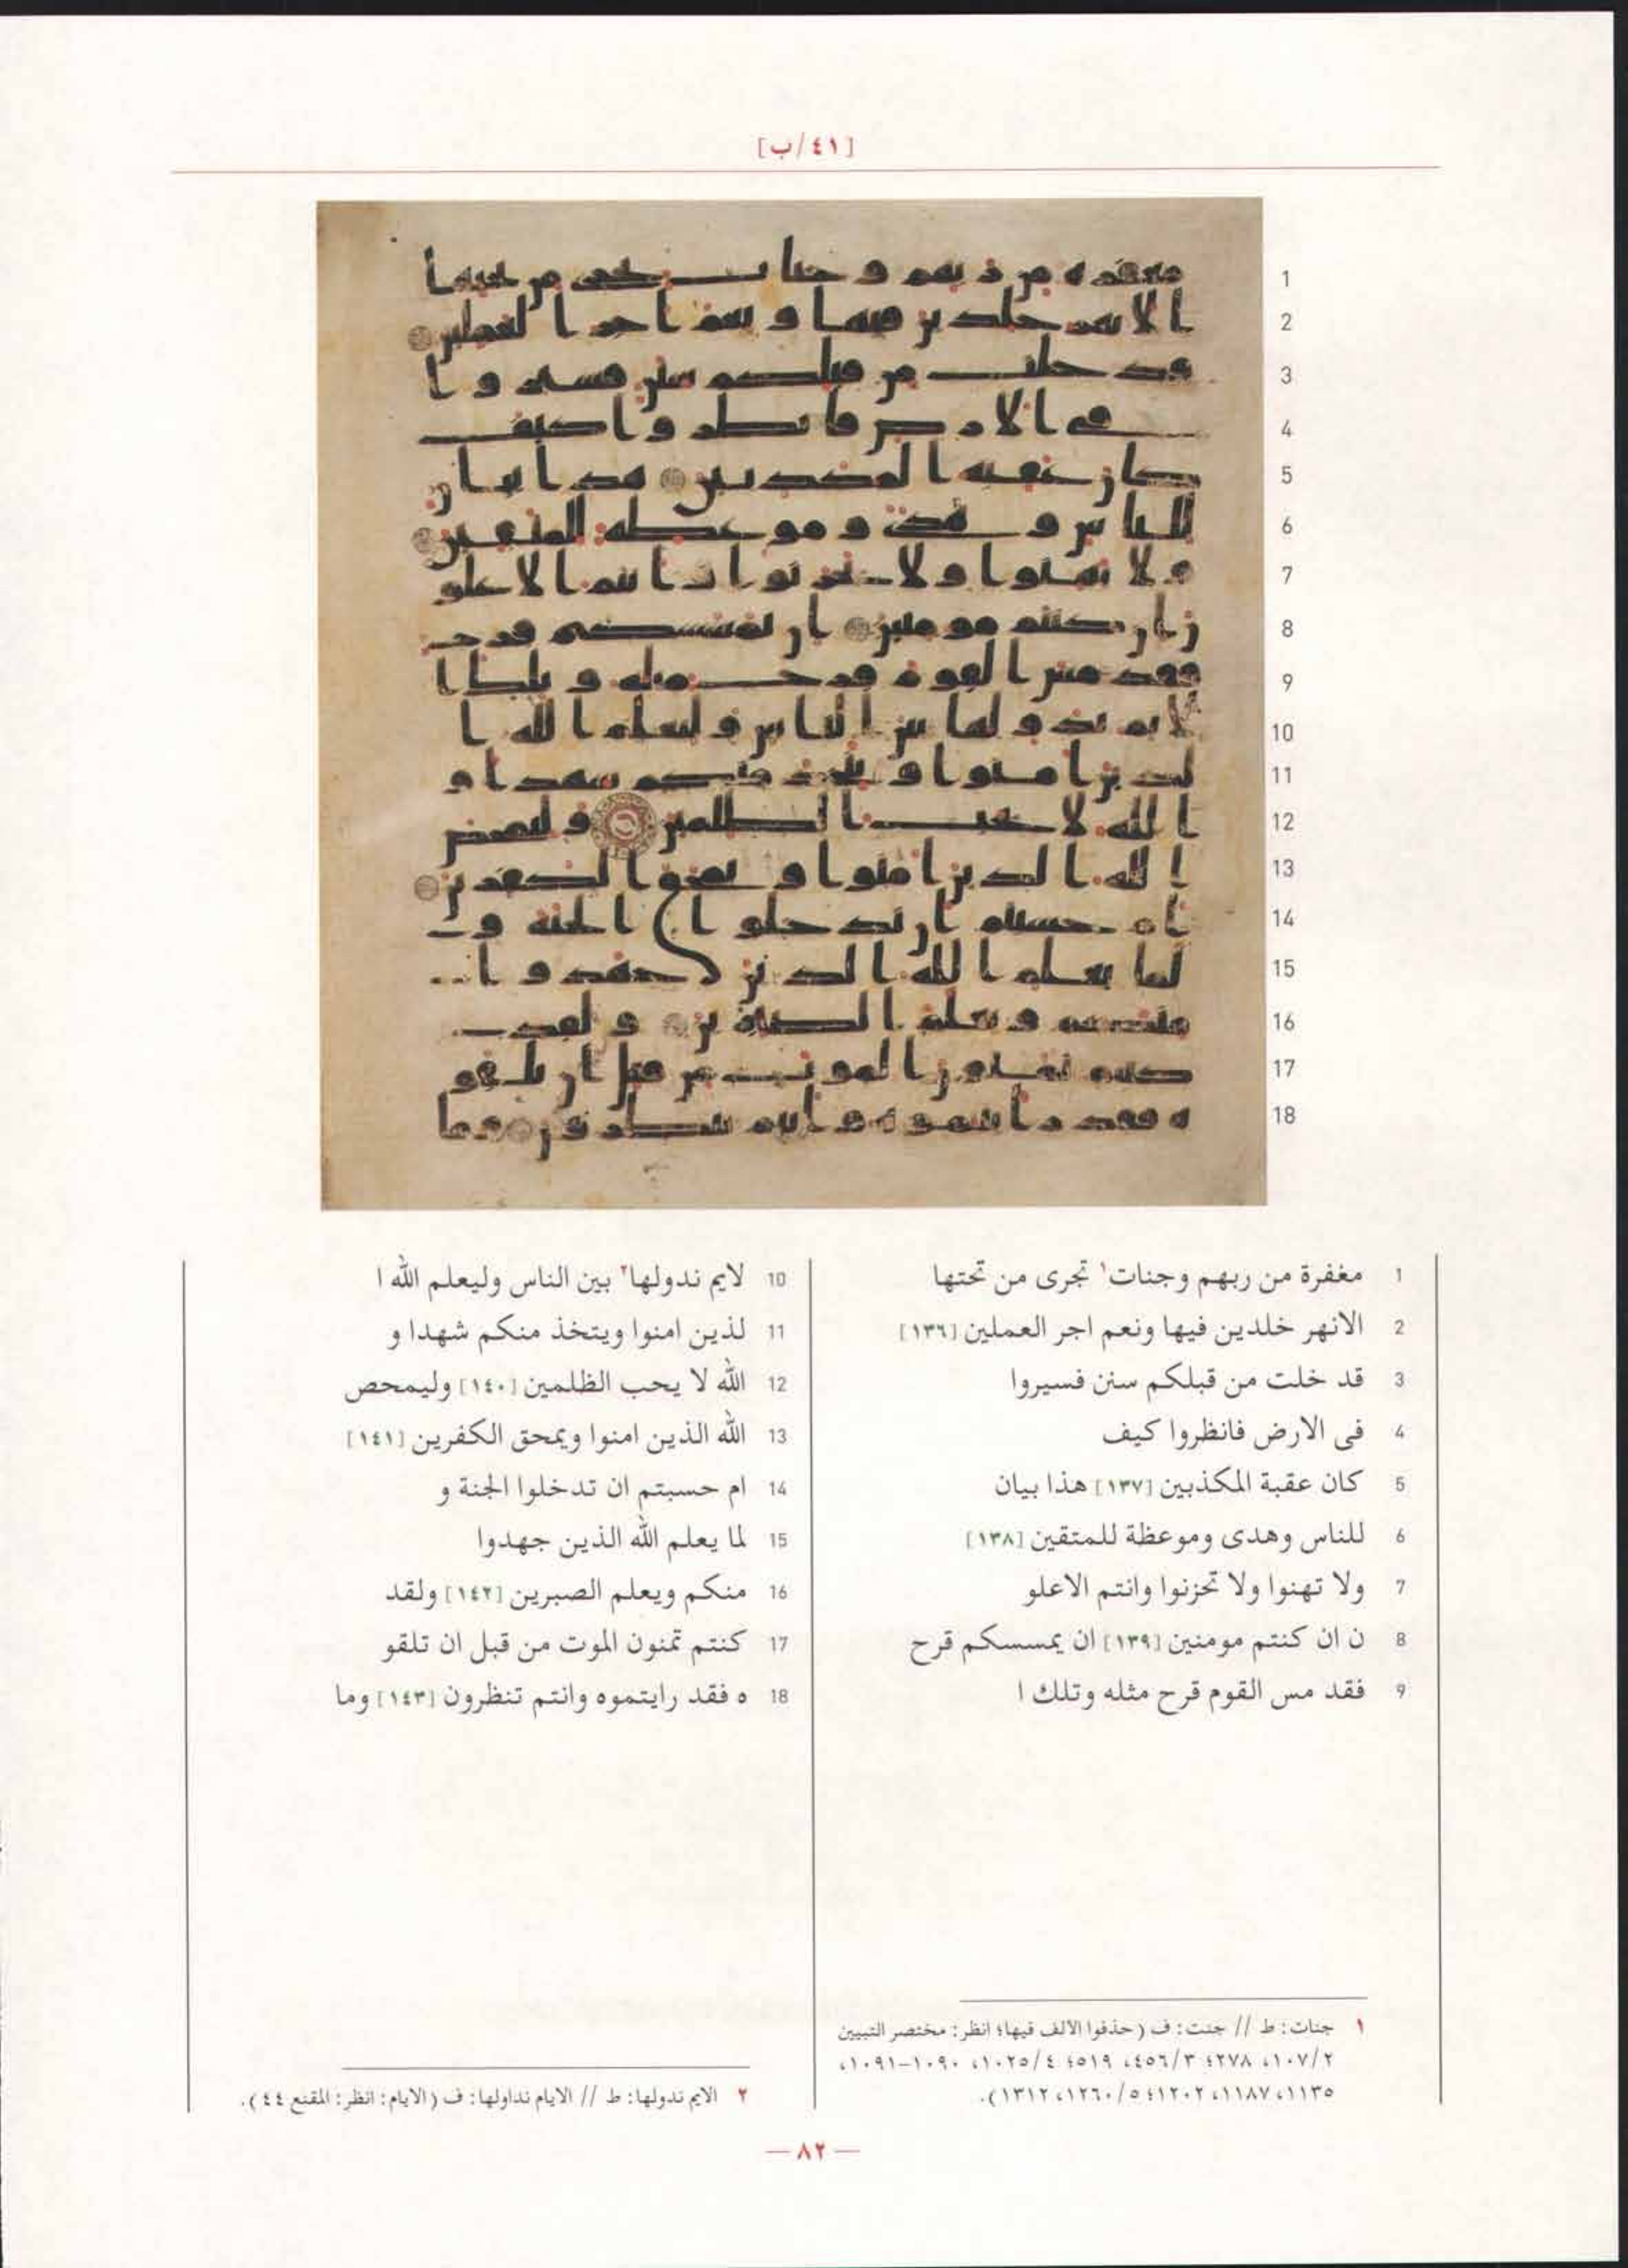 [٤١/ب]
1 مغفرة من ربهم وجنات١ تجرى من تحتها
2 الانهر خلدين فيها ونعم اجر العملين [١٣٦]
3 قد خلت من قبلكم سنن فسيروا
4 فى الارض فانظروا كيف
5 كان عقبة المكذبين [١٣٧] هذا بيان
6 للناس وهدى وموعظة للمتقين [١٣٨]
7 ولا تهنوا ولا تحزنوا وانتم الاعلو
8 ن ان كنتم مومنين [١٣٩] ان يمسسكم قرح
9 فقد مس القوم قرح مثله وتلك ا
10 لايم ندولها٢ بين الناس وليعلم الله ا
11 لذين امنوا ويتخذ منكم شهدا و
12 الله لا يحب الظلمين [١٤٠] وليمحص
13 الله الذين امنوا ويمحق الكفرين [١٤١]
14 ام حسبتم ان تدخلوا الجنة و
15 لما يعلم الله الذين جهدوا
16 منكم ويعلم الصبرين [١٤٢] ولقد
17 كنتم تمنون الموت من قبل ان تلقو
18 ه فقد رايتموه وانتم تنظرون [١٤٣] وما
١ جنات: ط // جنت: ف (حذفوا الالف فيها؛ انظر: مختصر التبيين
٢/١٠٧، ٢٧٨؛ ٣/٤٥٦، ٥١٩؛ ٤/١٠٢٥، ١٠٩٠-١٠٩١،
١١٣٥، ١١٨٧، ١٢٠٢؛ ٥/١٢٦٠، ١٣١٢).
٢ الايم ندولها: ط // الايام نداولها: ف (الايام: انظر: المقنع ٤٤).
— ٨٢ —